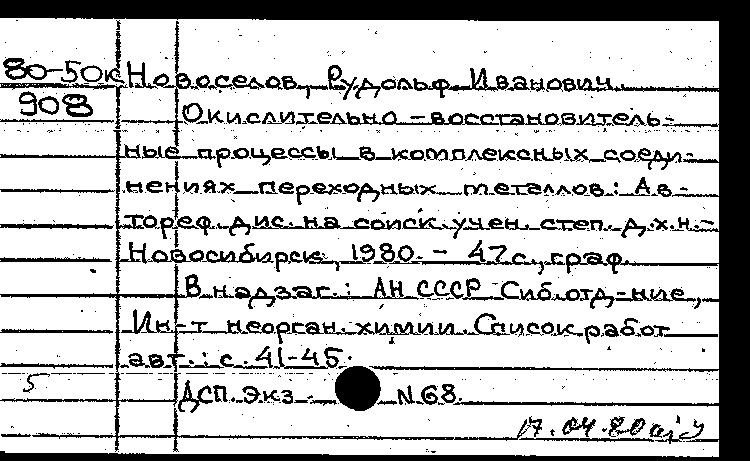 80-50к Новоселов, Рудольф Иванович.
908 Окислительно-восстановитель-
ные процессы в комплексных соеди-
нениях переходных металлов: Ав-
тореф. дис. на соиск. учен. степ. д.х.н.-
Новосибирск, 1980. - 47с., граф.
В надзаг.: АН СССР Сиб. отд-ние,
Ин-т неорган. химии. Список работ
авт.: с. 41-45.
5 ДСП. Экз. N 68.
17.04.80